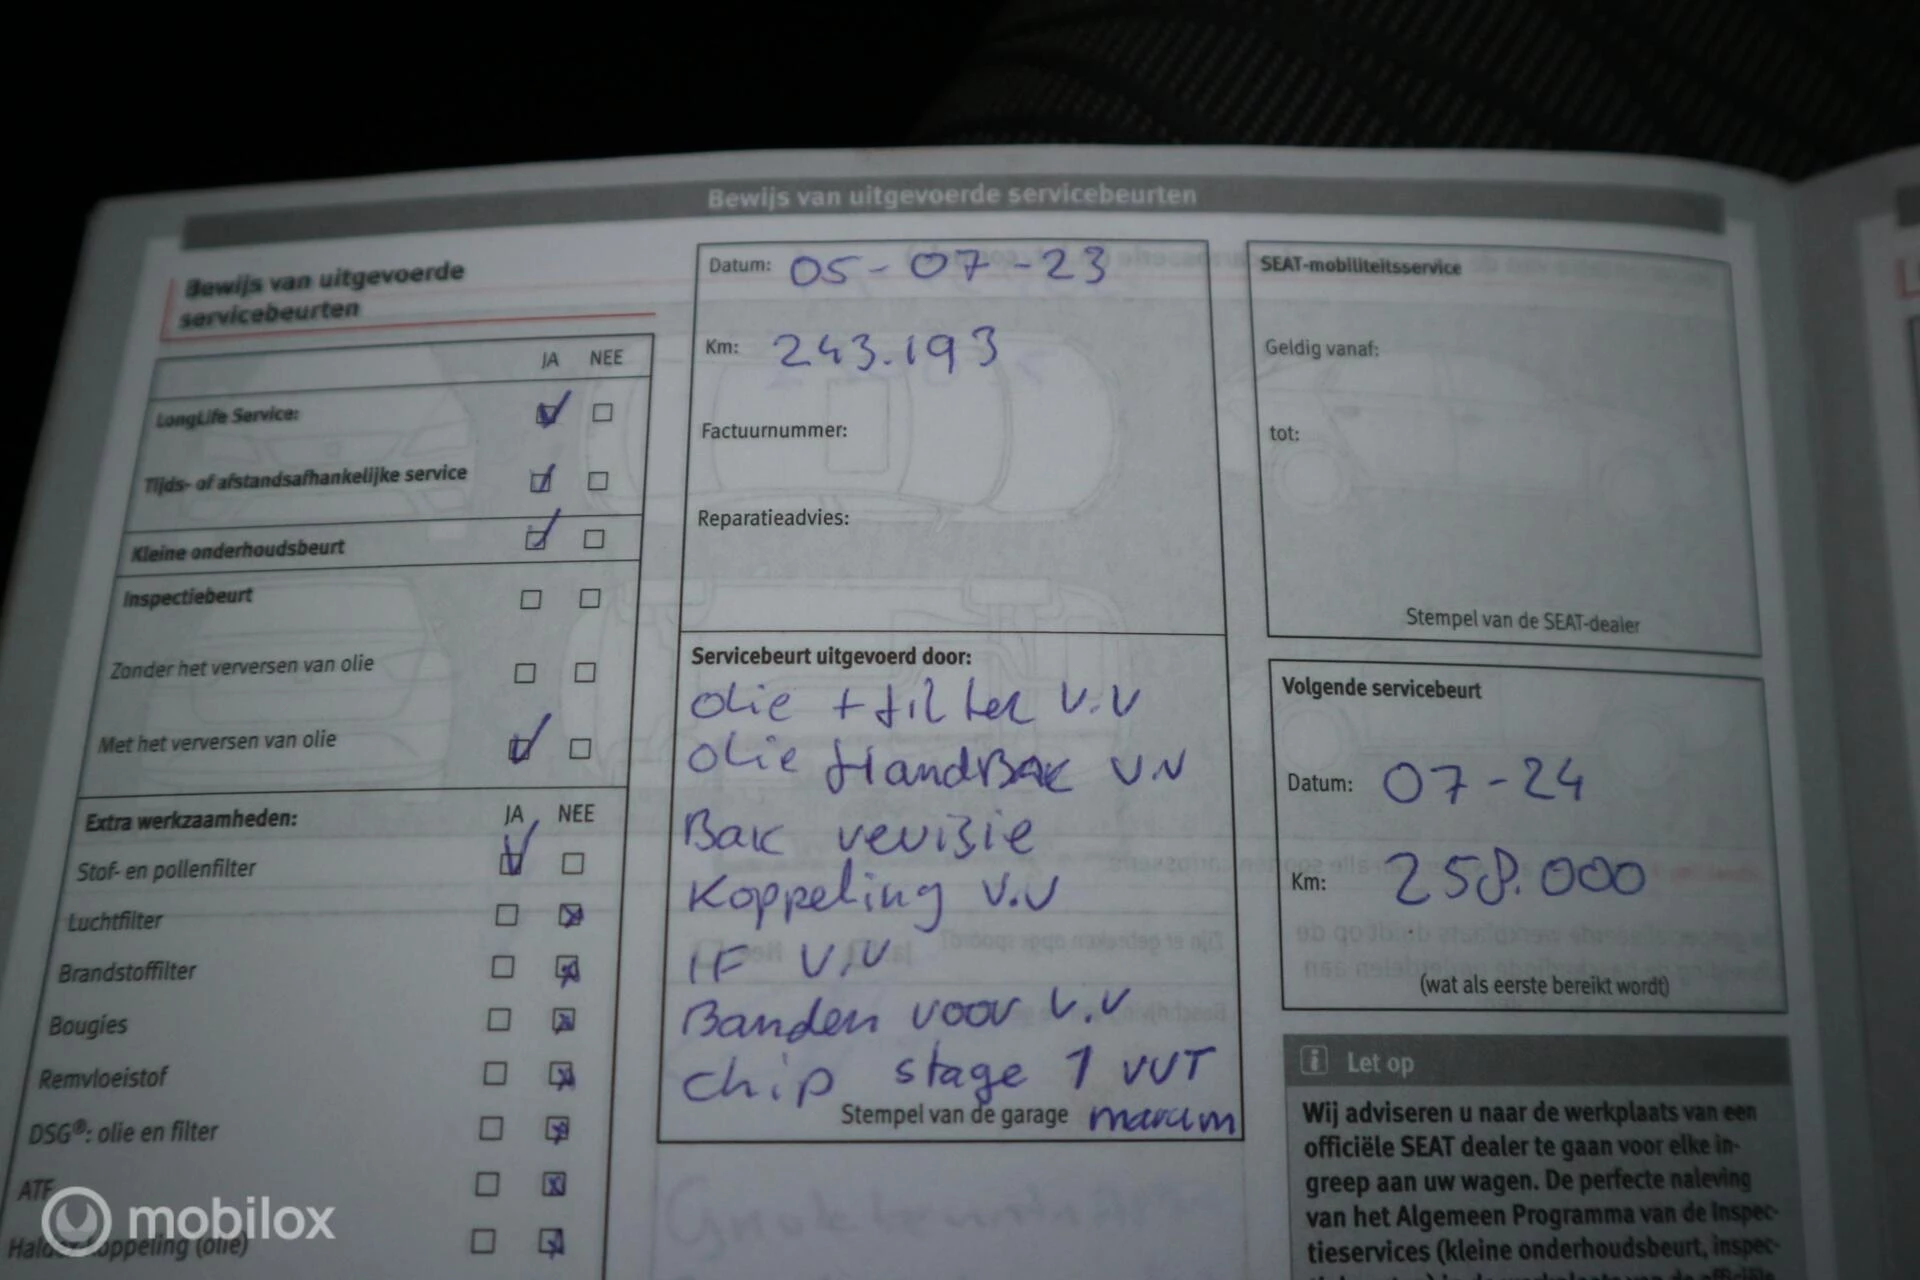 Bewijs van uitgevoerde servicebeurten
Bewijs van uitgevoerde
servicebeurten
JA NEE
LongLife Service:
Tijds- of afstandsafhankelijke service
Kleine onderhoudsbeurt
Inspectiebeurt
Zonder het verversen van olie
Met het verversen van olie
Extra werkzaamheden: JA NEE
Stof- en pollenfilter
Luchtfilter
Brandstoffilter
Bougies
Remvloeistof
DSG®: olie en filter
ATF
koppeling (olie)
Datum: 05-07-23
Km: 243.193
Factuurnummer:
Reparatieadvies:
Servicebeurt uitgevoerd door:
olie + filter V.V
olie Handbak V.V
Bak revisie
Koppeling V.V
IF V.V
Banden voor V.V
chip stage 1 VVT
Stempel van de garage marum
SEAT-mobiliteitsservice
Geldig vanaf:
tot:
Stempel van de SEAT-dealer
Volgende servicebeurt
Datum: 07-24
Km: 258.000
(wat als eerste bereikt wordt)
Let op
Wij adviseren u naar de werkplaats van een
officiële SEAT dealer te gaan voor elke in-
greep aan uw wagen. De perfecte naleving
van het Algemeen Programma van de Inspec-
tieservices (kleine onderhoudsbeurt, inspec-
mobilox